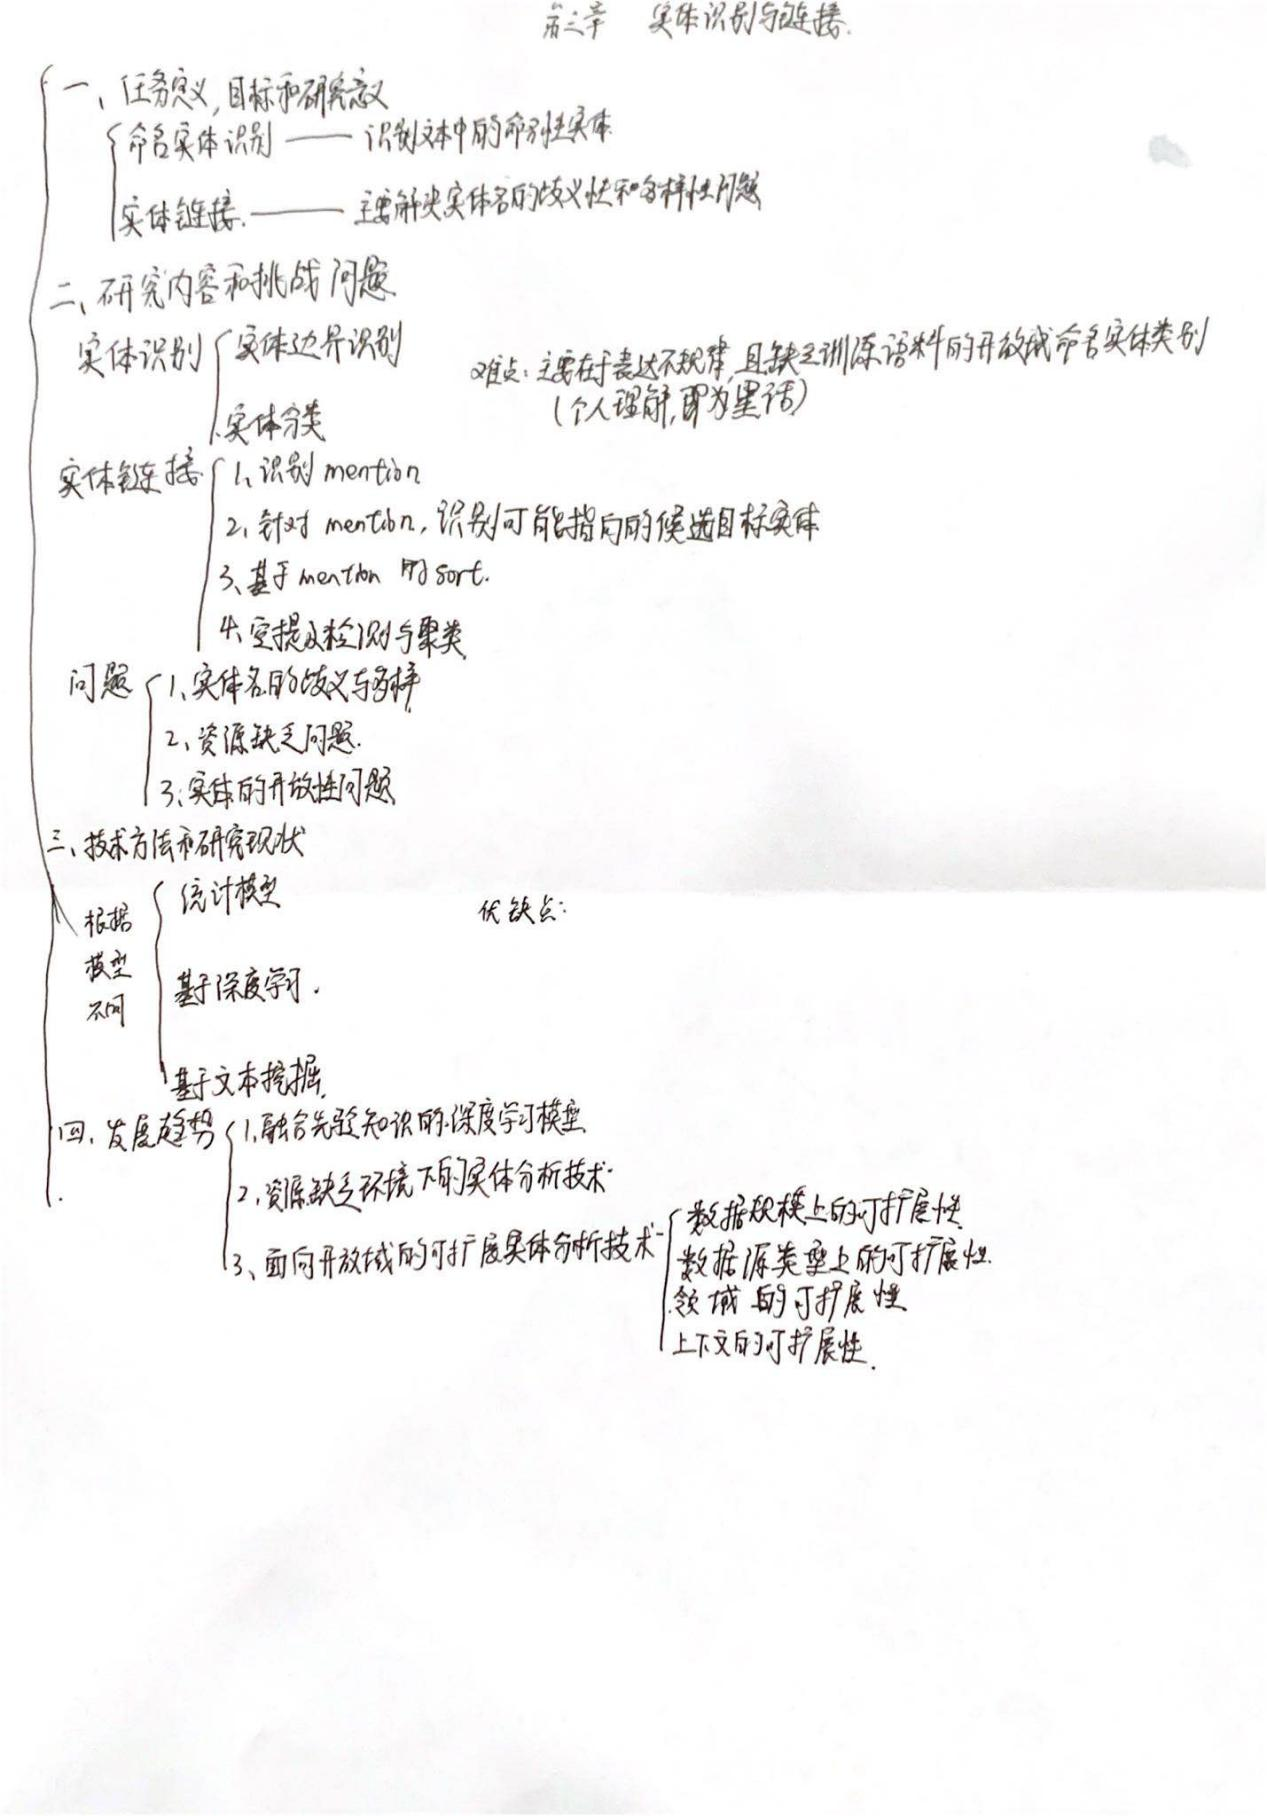 第三章 实体识别与链接.
一、任务定义,目标和研究意义
命名实体识别 —— 识别文本中的命名性实体.
实体链接. —— 主要解决实体名的歧义性和多样性问题
二、研究内容和挑战问题
实体识别 实体边界识别
难点:主要在于表达不规律,且缺乏训练语料的开放域命名实体类别
(个人理解,即为黑话)
实体分类
实体链接 1、识别mention
2、针对mention,识别可能指向的候选目标实体
3、基于mention的sort.
4、空提及检测与聚类
问题 1、实体名的歧义与多样
2、资源缺乏问题.
3、实体的开放性问题
三、技术方法和研究现状
根据模型不同
统计模型 优缺点:
基于深度学习.
基于文本挖掘.
四、发展趋势 1、融合先验知识的深度学习模型
2、资源缺乏环境下的实体分析技术
3、面向开放域的可扩展实体分析技术
数据规模上的可扩展性
数据源类型上的可扩展性.
领域的可扩展性
上下文的可扩展性.